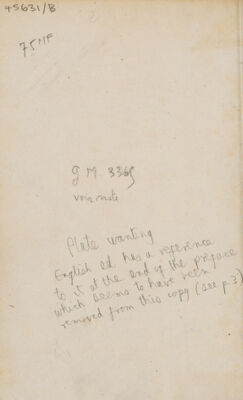 45631/B
75 NF
G M. 3365
Plate wanting
English ed has a reference
to it at the end of the preface
which seems to have been
removed from this copy (see p 3)